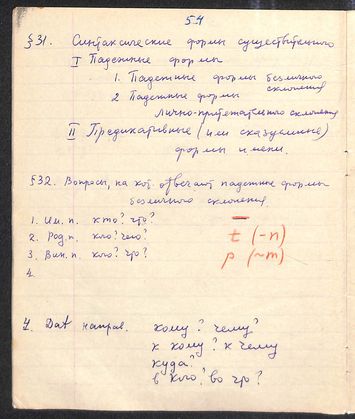 54
§31. Синтаксические формы существительного
I Падежные формы
1. Падежные формы безличного
склонения
2 Падежные формы
лично-притяжательного склонения
II Предикативные (или сказуемные)
формы имени.
§32. Вопросы, на кот. отвечают падежные формы
безличного склонения.
1. Им. п. кто? что?
2. Род. п. кого? чего?
t (-n)
3. Вин. п. кого? что?
p (~m)
4.
4. Dat направ. кому? чему?
к кому? к чему
куда?
в кого? во что?